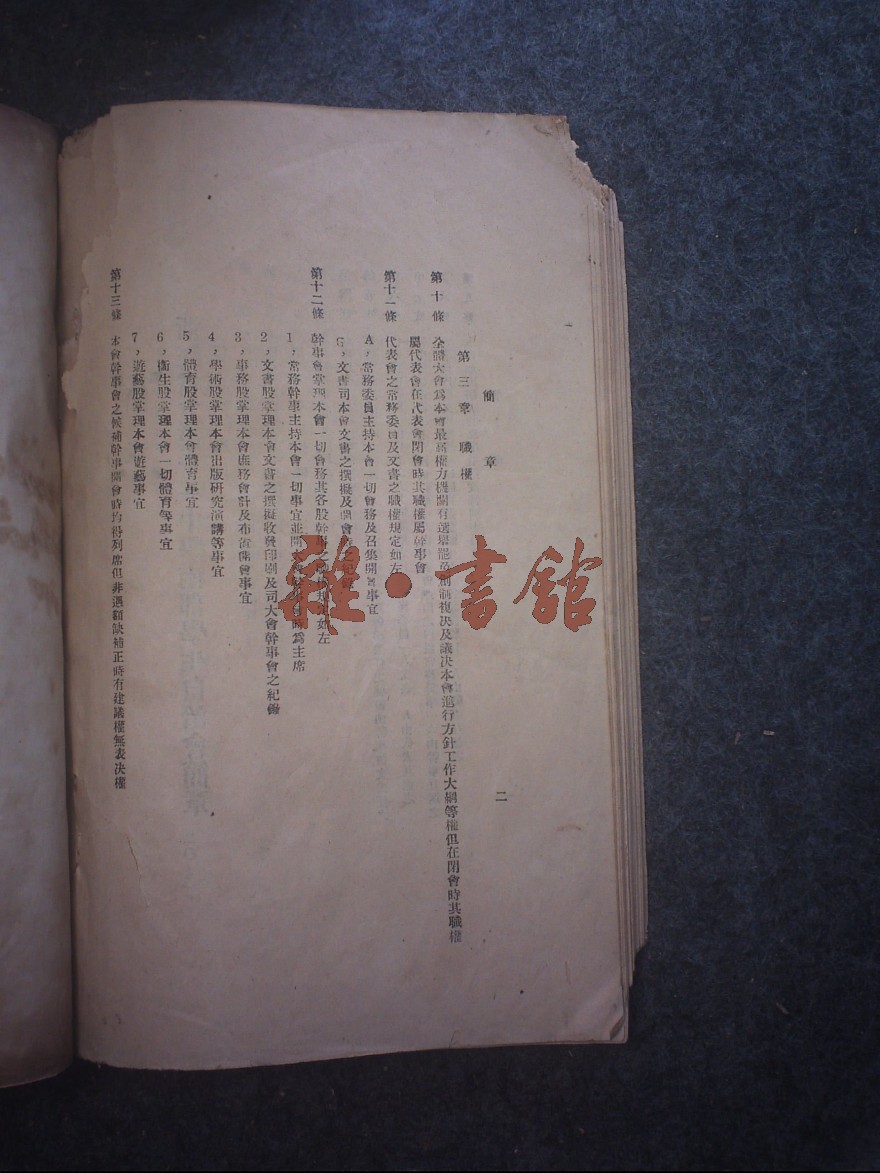 簡章
二
第三章 職權
第十條 全體大會為本會最高權力機關有選舉罷免創制複決及議決本會進行方針工作大綱等權但在閉會時其職權
屬代表會在代表會閉會時其職權屬幹事會
第十一條 代表會之常務委員及文書之職權規定如左
A，常務委員主持本會一切會務及召集開會事宜
文書司本會文書之撰擬及開會
第十二條 幹事會掌理本會一切會務其各股幹事之職權規定如左
1，常務幹事主持本會一切事宜並開大會幹事會時為主席
2，文書股掌理本會文書之撰擬收發印刷及司大會幹事會之紀錄
3，事務股掌理本會庶務會計及布置開會事宜
4，學術股掌理本會出版研究演講等事宜
5，體育股掌理本會體育事宜
6，衛生股掌理本會一切體育等事宜
7，遊藝股掌理本會遊藝事宜
第十三條 本會幹事會之候補幹事開會時均得列席但非遇額缺補正時有建議權無表決權
雜·書館